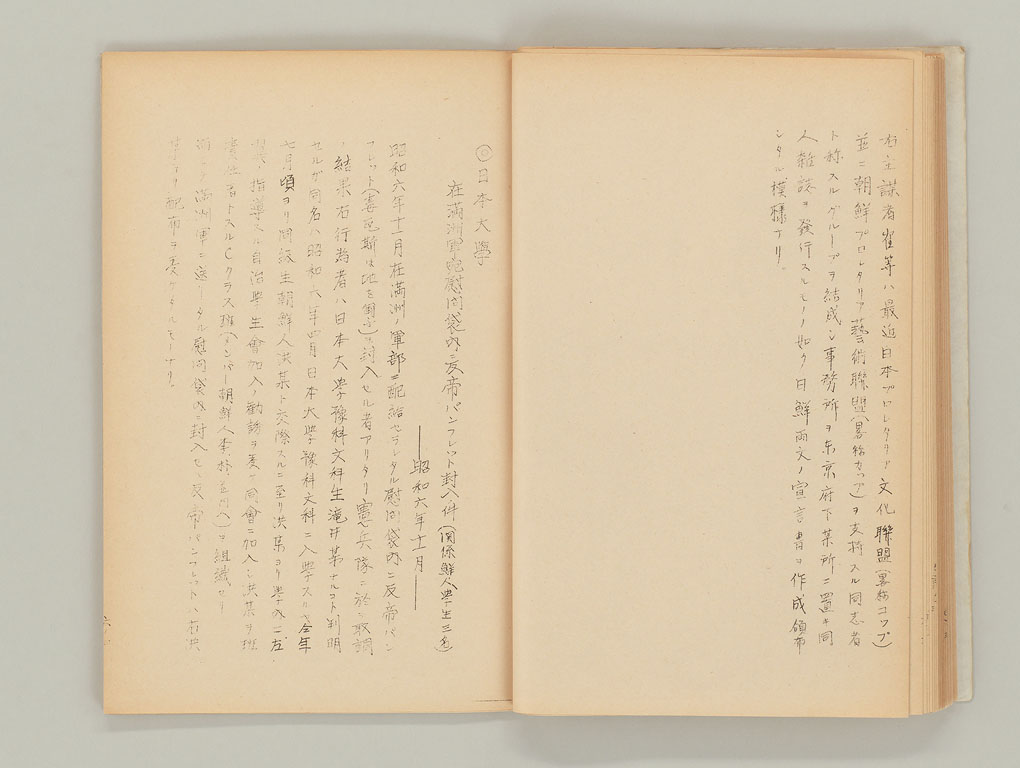 右主謀者崔等ハ最近日本プロレタリア文化聯盟(畧称コップ)
並ニ朝鮮プロレタリア藝術聯盟(畧称カップ)ヲ支持スル同志者
ト称スルグループヲ結成シ事務所ヲ東京府下某所ニ置キ同
人雜誌ヲ發行スルモノノ如ク日鮮両文ノ宣言書ヲ作成頒布
シタル模樣ナリ。
◎日本大學
在滿洲軍宛慰問袋内ニ反帝パンフレット封入件(関係鮮人學生三名)
——昭和六年十二月——
昭和六年十二月在滿洲ノ軍部ニ配給セラレタル慰問袋内ニ反帝パン
フレット(露瓦斯は地を匍ふ)ヲ封入セル者アリタリ憲兵隊ニ於テ取調
ノ結果右行為者ハ日本大學豫科文科生滝井某ナルコト判明
セルガ同名ハ昭和六年四月日本大學豫科文科ニ入學スルヤ今年
七月頃ヨリ同級生朝鮮人洪某ト交際スルニ至リ洪某ヨリ學内ニ左
指導スル自治學生會加入ノ勧誘ヲ受ケ同會ニ加入シ洪某ヲ班
責任者トスルCクラス班(メンバー朝鮮人李、林、並川ヘ)ヲ組織セリ
滿洲軍ニ送リタル慰問袋内ニ封入セシ反帝パンフレットハ右洪
ヨリ配布ヲ受ケタルモノナリ。